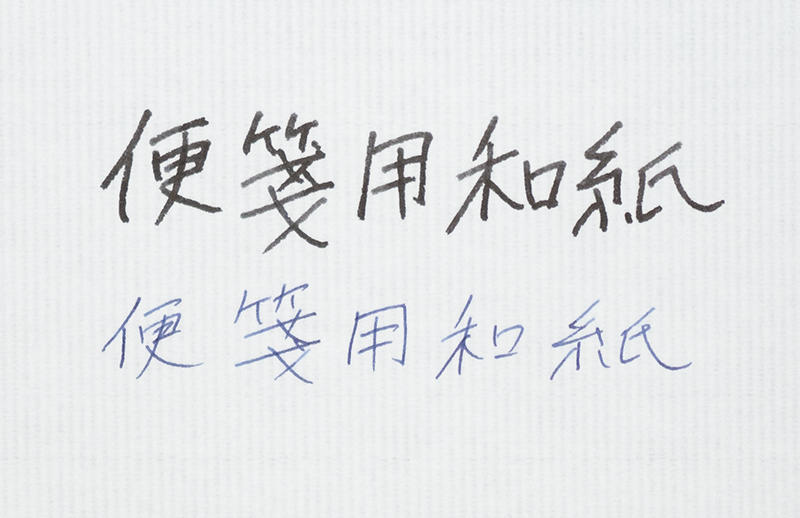 便箋用和紙
便箋用和紙